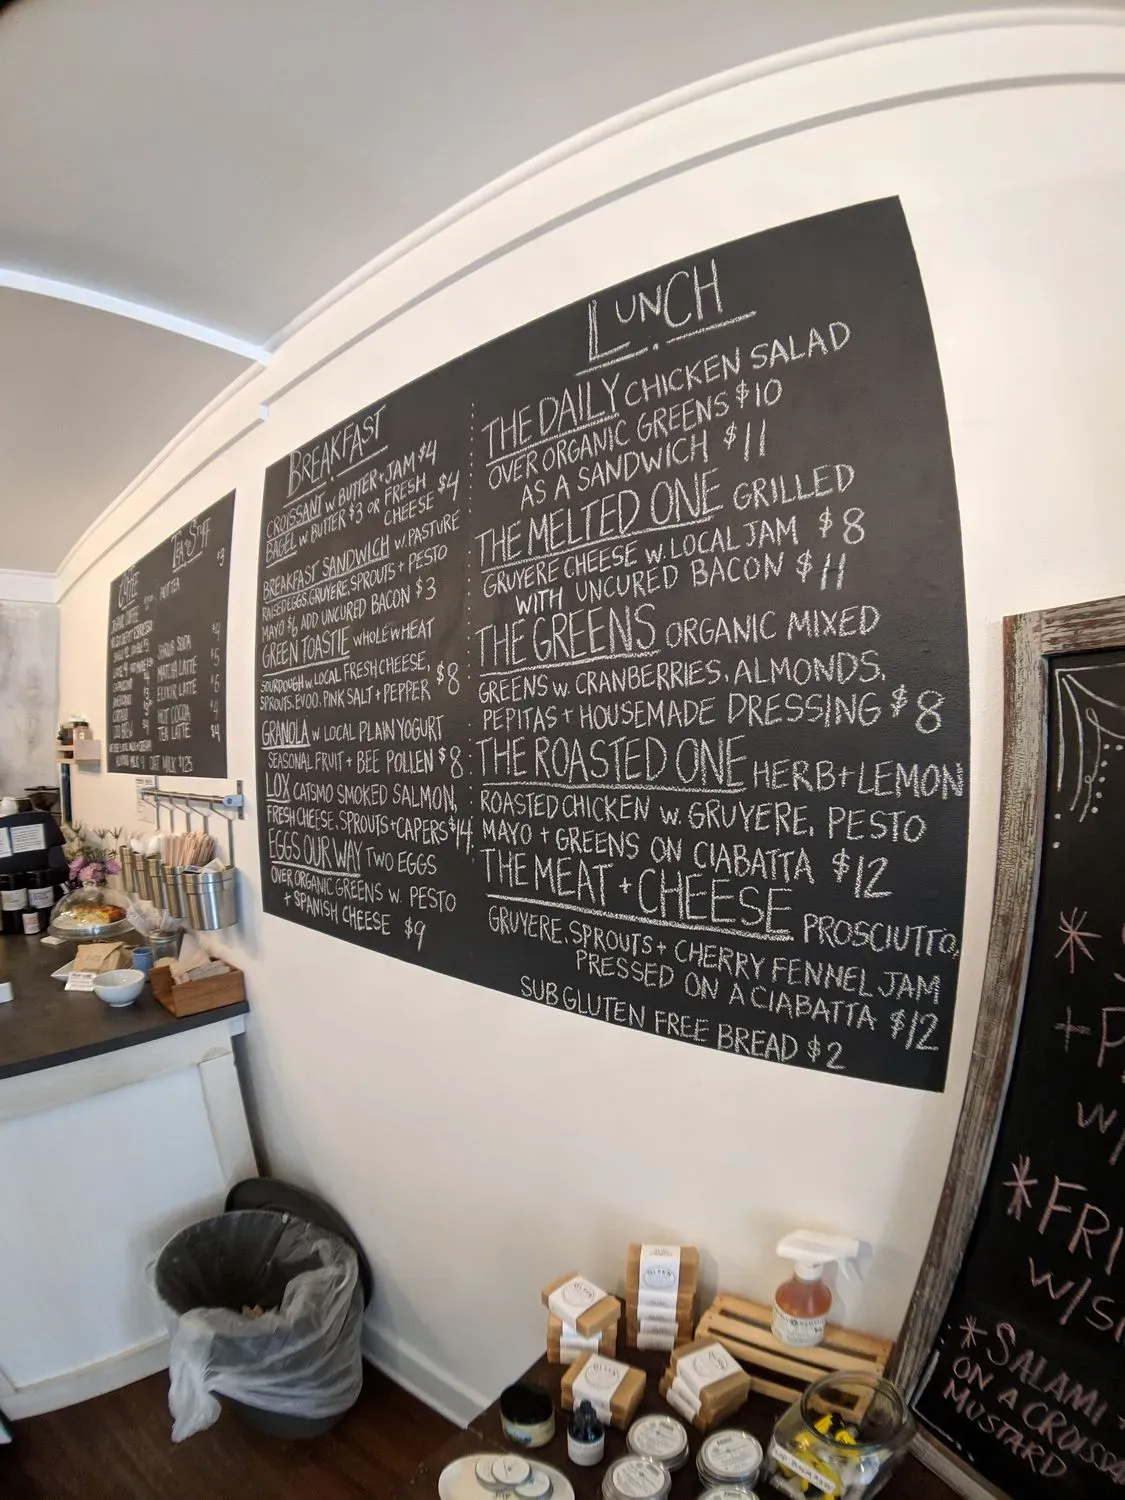 TEA + STUFF
HOT TEA
$3
ITALIAN SODA $4
MATCHA LATTE $5
ELIXIR LATTE $6
HOT COCOA $4
TEA LATTE $4
OAT MILK $1.25
BREAKFAST
CROISSANT w. BUTTER + JAM $4
BAGEL w. BUTTER $3 OR FRESH
CHEESE $4
BREAKFAST SANDWICH w. PASTURE
RAISED EGGS, GRUYERE, SPROUTS + PESTO
MAYO $6, ADD UNCURED BACON $3
GREEN TOASTIE WHOLE WHEAT
SOURDOUGH w. LOCAL FRESH CHEESE,
SPROUTS, EVOO, PINK SALT + PEPPER $8
GRANOLA w LOCAL PLAIN YOGURT
SEASONAL FRUIT + BEE POLLEN $8
LOX CATSMO SMOKED SALMON,
FRESH CHEESE, SPROUTS + CAPERS $14
EGGS OUR WAY TWO EGGS
OVER ORGANIC GREENS w. PESTO
+ SPANISH CHEESE $9
LUNCH
THE DAILY CHICKEN SALAD
OVER ORGANIC GREENS $10
AS A SANDWICH $11
THE MELTED ONE GRILLED
GRUYERE CHEESE w. LOCAL JAM $8
WITH UNCURED BACON $11
THE GREENS ORGANIC MIXED
GREENS w. CRANBERRIES, ALMONDS,
PEPITAS + HOUSEMADE DRESSING $8
THE ROASTED ONE HERB + LEMON
ROASTED CHICKEN w. GRUYERE, PESTO
MAYO + GREENS ON CIABATTA $12
THE MEAT + CHEESE PROSCIUTTO,
GRUYERE, SPROUTS + CHERRY FENNEL JAM
PRESSED ON A CIABATTA $12
SUB GLUTEN FREE BREAD $2
*
+ P
w/
*FRI
w/S
*SALAMI +
ON A CROISSA
MUSTARD